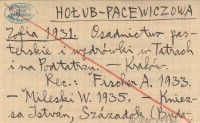 HOŁUB-PACEWICZOWA
Zofia 1931. Osadnictwo pas-
terskie i wędrówki w Tatrach
i na Podtatrzu. – Kraków.
Rec.: Fischer A. 1933.
– Mileski W. 1935. – Kniez-
sa István, Századok (Buda-